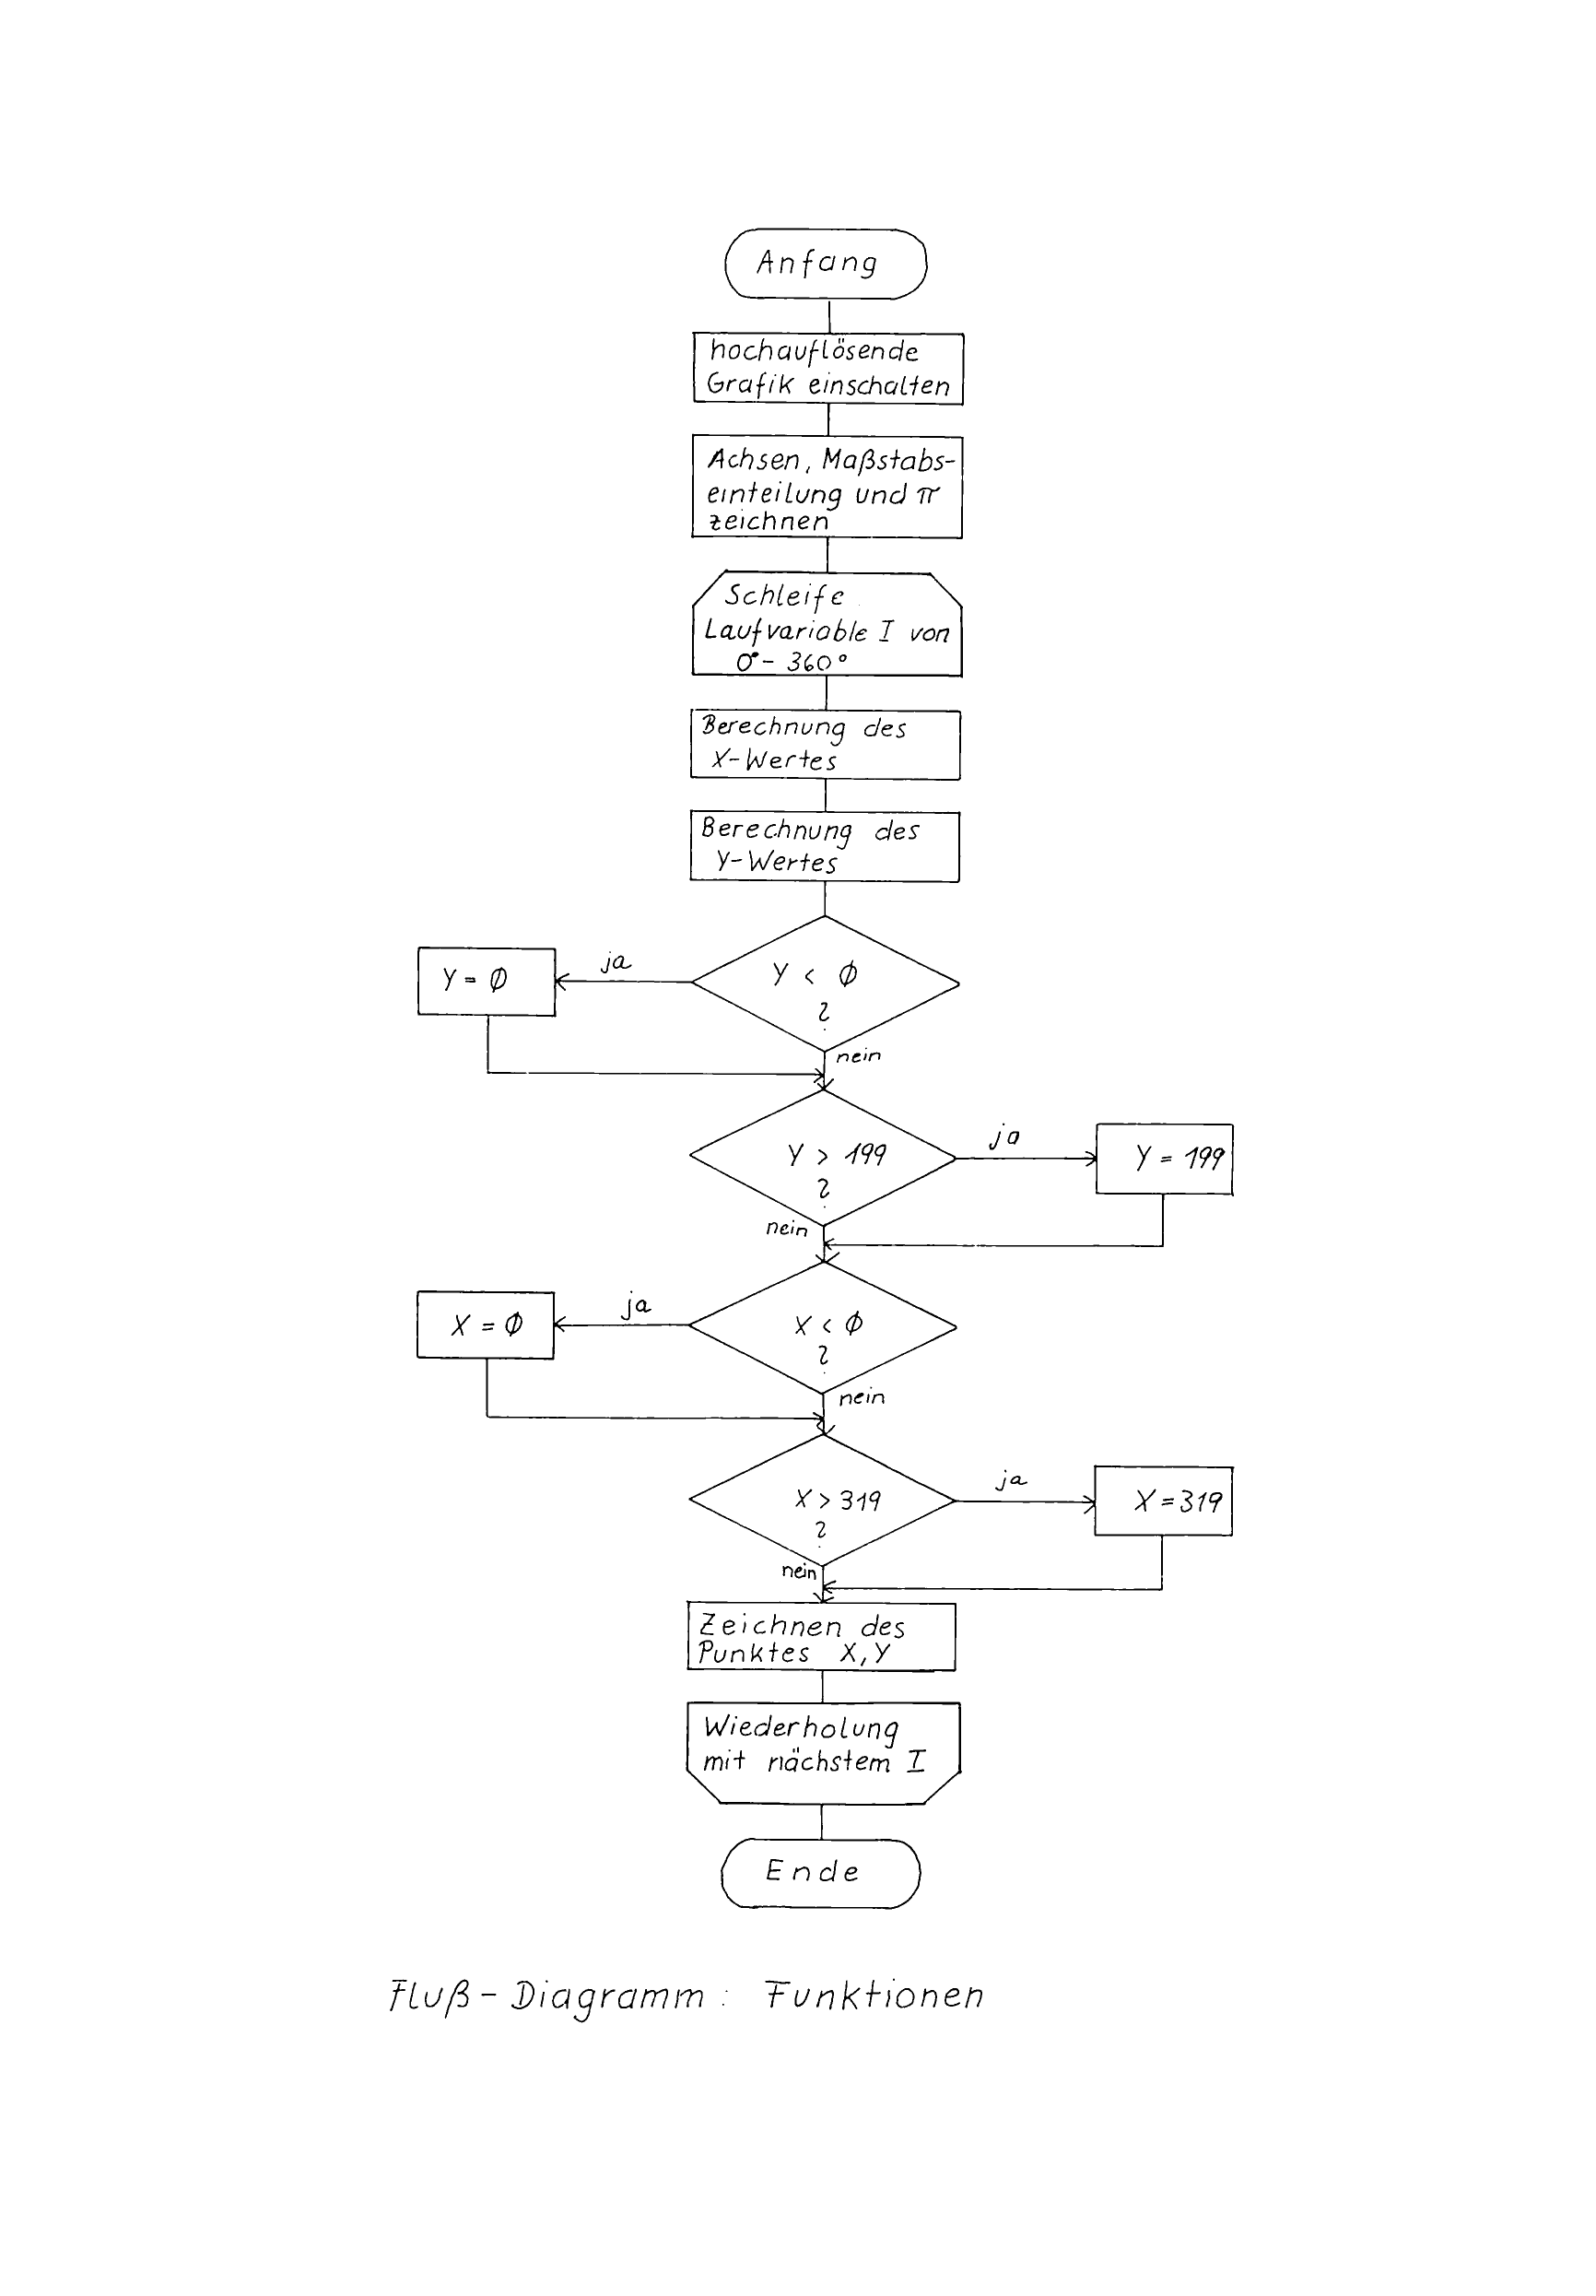 Anfang
hochauflösende
Grafik einschalten
Achsen, Maßstabs-
einteilung und π
zeichnen
Schleife
Laufvariable I von
0°- 360°
Berechnung des
X-Wertes
Berechnung des
Y-Wertes
Y = Ø
ja
Y < Ø
?
nein
Y > 199
?
ja
Y = 199
nein
X = Ø
ja
X < Ø
?
nein
X > 319
?
ja
X = 319
nein
Zeichnen des
Punktes X, Y
Wiederholung
mit nächstem I
Ende
Fluß - Diagramm : Funktionen